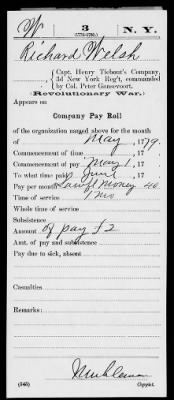 W | 3 | N. Y.
(1775-1783.)
Richard Welsh
Capt. Henry Tiebout's Company,
3d New York Reg't, commanded
by Col. Peter Gansevoort.
(Revolutionary War.)
Appears on
Company Pay Roll
of the organization named above for the month
of May, 1779.
Commencement of time, 17 .
Commencement of pay May 1, 17 .
To what time paid June 1, 17 .
Pay per month Lawful Money 40
Time of service 1 mo
Whole time of service
Subsistence
Amount of pay £2
Amt. of pay and subsistence
Pay due to sick, absent
Casualties
Remarks:
(545) Copyist.